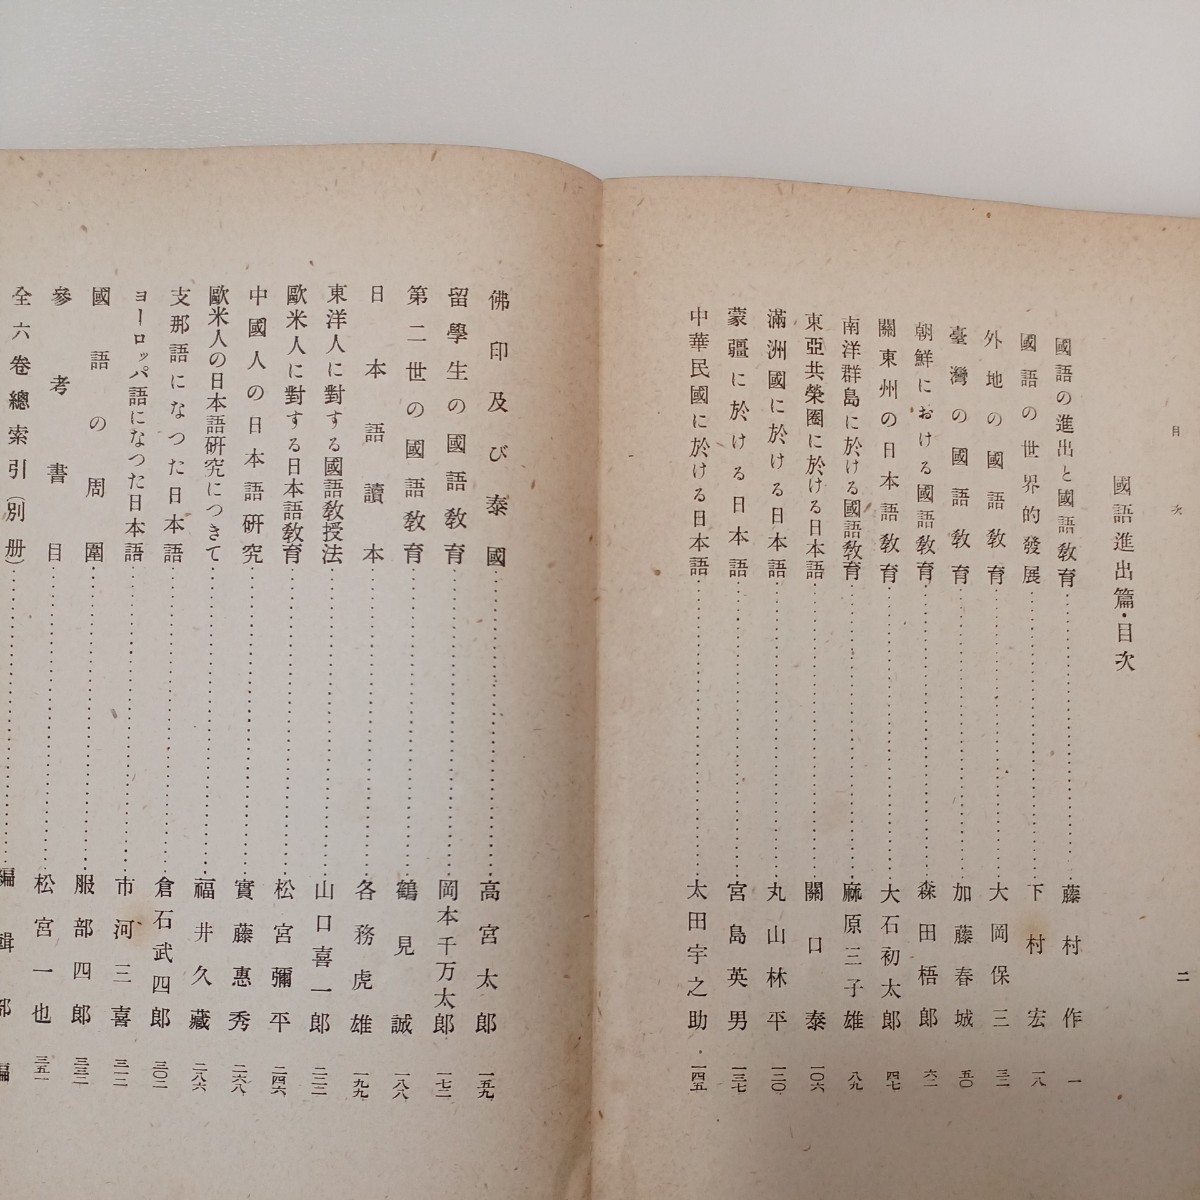 目次
二
國語進出篇・目次
國語の進出と國語敎育……藤村作 一
國語の世界的發展……下村宏 一八
外地の國語敎育……大岡保三 三二
臺灣の國語敎育……加藤春城 五〇
朝鮮における國語敎育……森田梧郎 六二
關東州の日本語敎育……大石初太郎 七四
南洋群島に於ける國語敎育……麻原三子雄 八九
東亞共榮圈に於ける日本語……關口泰 一〇六
滿洲國に於ける日本語……丸山林平 一二〇
蒙疆に於ける日本語……宮島英男 一三七
中華民國に於ける日本語……太田宇之助 一四五
佛印及び泰國……高宮太郎 一五九
留學生の國語敎育……岡本千万太郎 一七二
第二世の國語敎育……鶴見誠 一八八
日本語讀本……各務虎雄 一九九
東洋人に對する國語敎授法……山口喜一郎 二二二
歐米人に對する日本語敎育……松宮彌平 二四六
中國人の日本語硏究……實藤惠秀 二六八
歐米人の日本語硏究につきて……福井久藏 二八六
支那語になつた日本語……倉石武四郎 三〇二
ヨーロッパ語になつた日本語……市河三喜 三一二
國語の周圍……服部四郎 三三二
參考書目……松宮一也 三五一
全六卷總索引(別册)……編輯部編